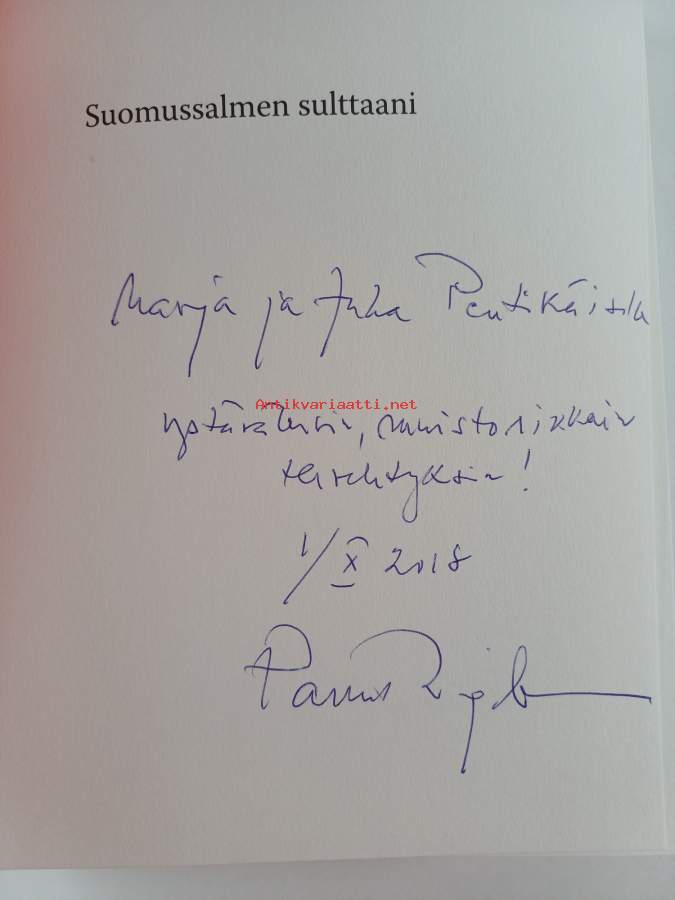 Suomussalmen sulttaani
Marja ja Juha Pentikäiselle
Antikvariaatti.net
ystävällisin, muistorikkain
tervehtyksin!
1/X 2018
Panu Rajala